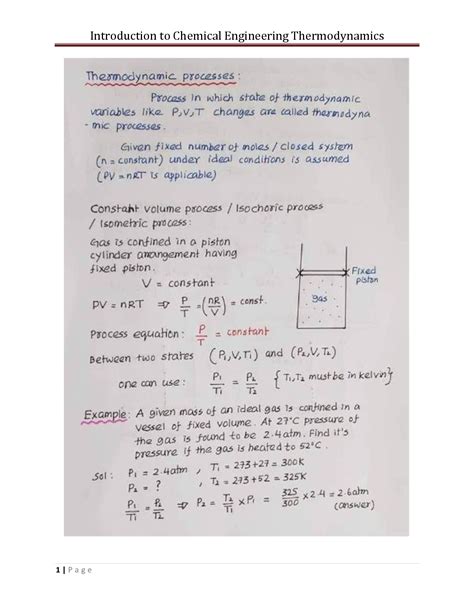 Introduction to Chemical Engineering Thermodynamics
Thermodynamic processes:
Process in which state of thermodynamic
variables like P,V,T changes are called thermodyna
-mic processes.
Given fixed number of moles / closed system
(n = constant) under ideal conditions is assumed
(PV = nRT is applicable)
Constant volume process / Isochoric process
/ Isometric process:
Gas is confined in a piston
cylinder arrangement having
fixed piston.
V = constant
Fixed
piston
Gas
PV = nRT ⇒ P/T = (nR/V) = const.
Process equation: P/T = constant
Between two states (P1,V,T1) and (P2,V,T2)
one can use: P1/T1 = P2/T2 {T1,T2 must be in kelvin}
Example: A given mass of an ideal gas is confined in a
vessel of fixed volume. At 27°C pressure of
the gas is found to be 2.4atm. Find it's
pressure if the gas is heated to 52°C.
Sol: P1 = 2.4atm , T1 = 273+27 = 300K
P2 = ? , T2 = 273+52 = 325K
P1/T1 = P2/T2 ⇒ P2 = T2/T1 × P1 = 325/300 × 2.4 = 2.6atm
(answer)
1 | Page